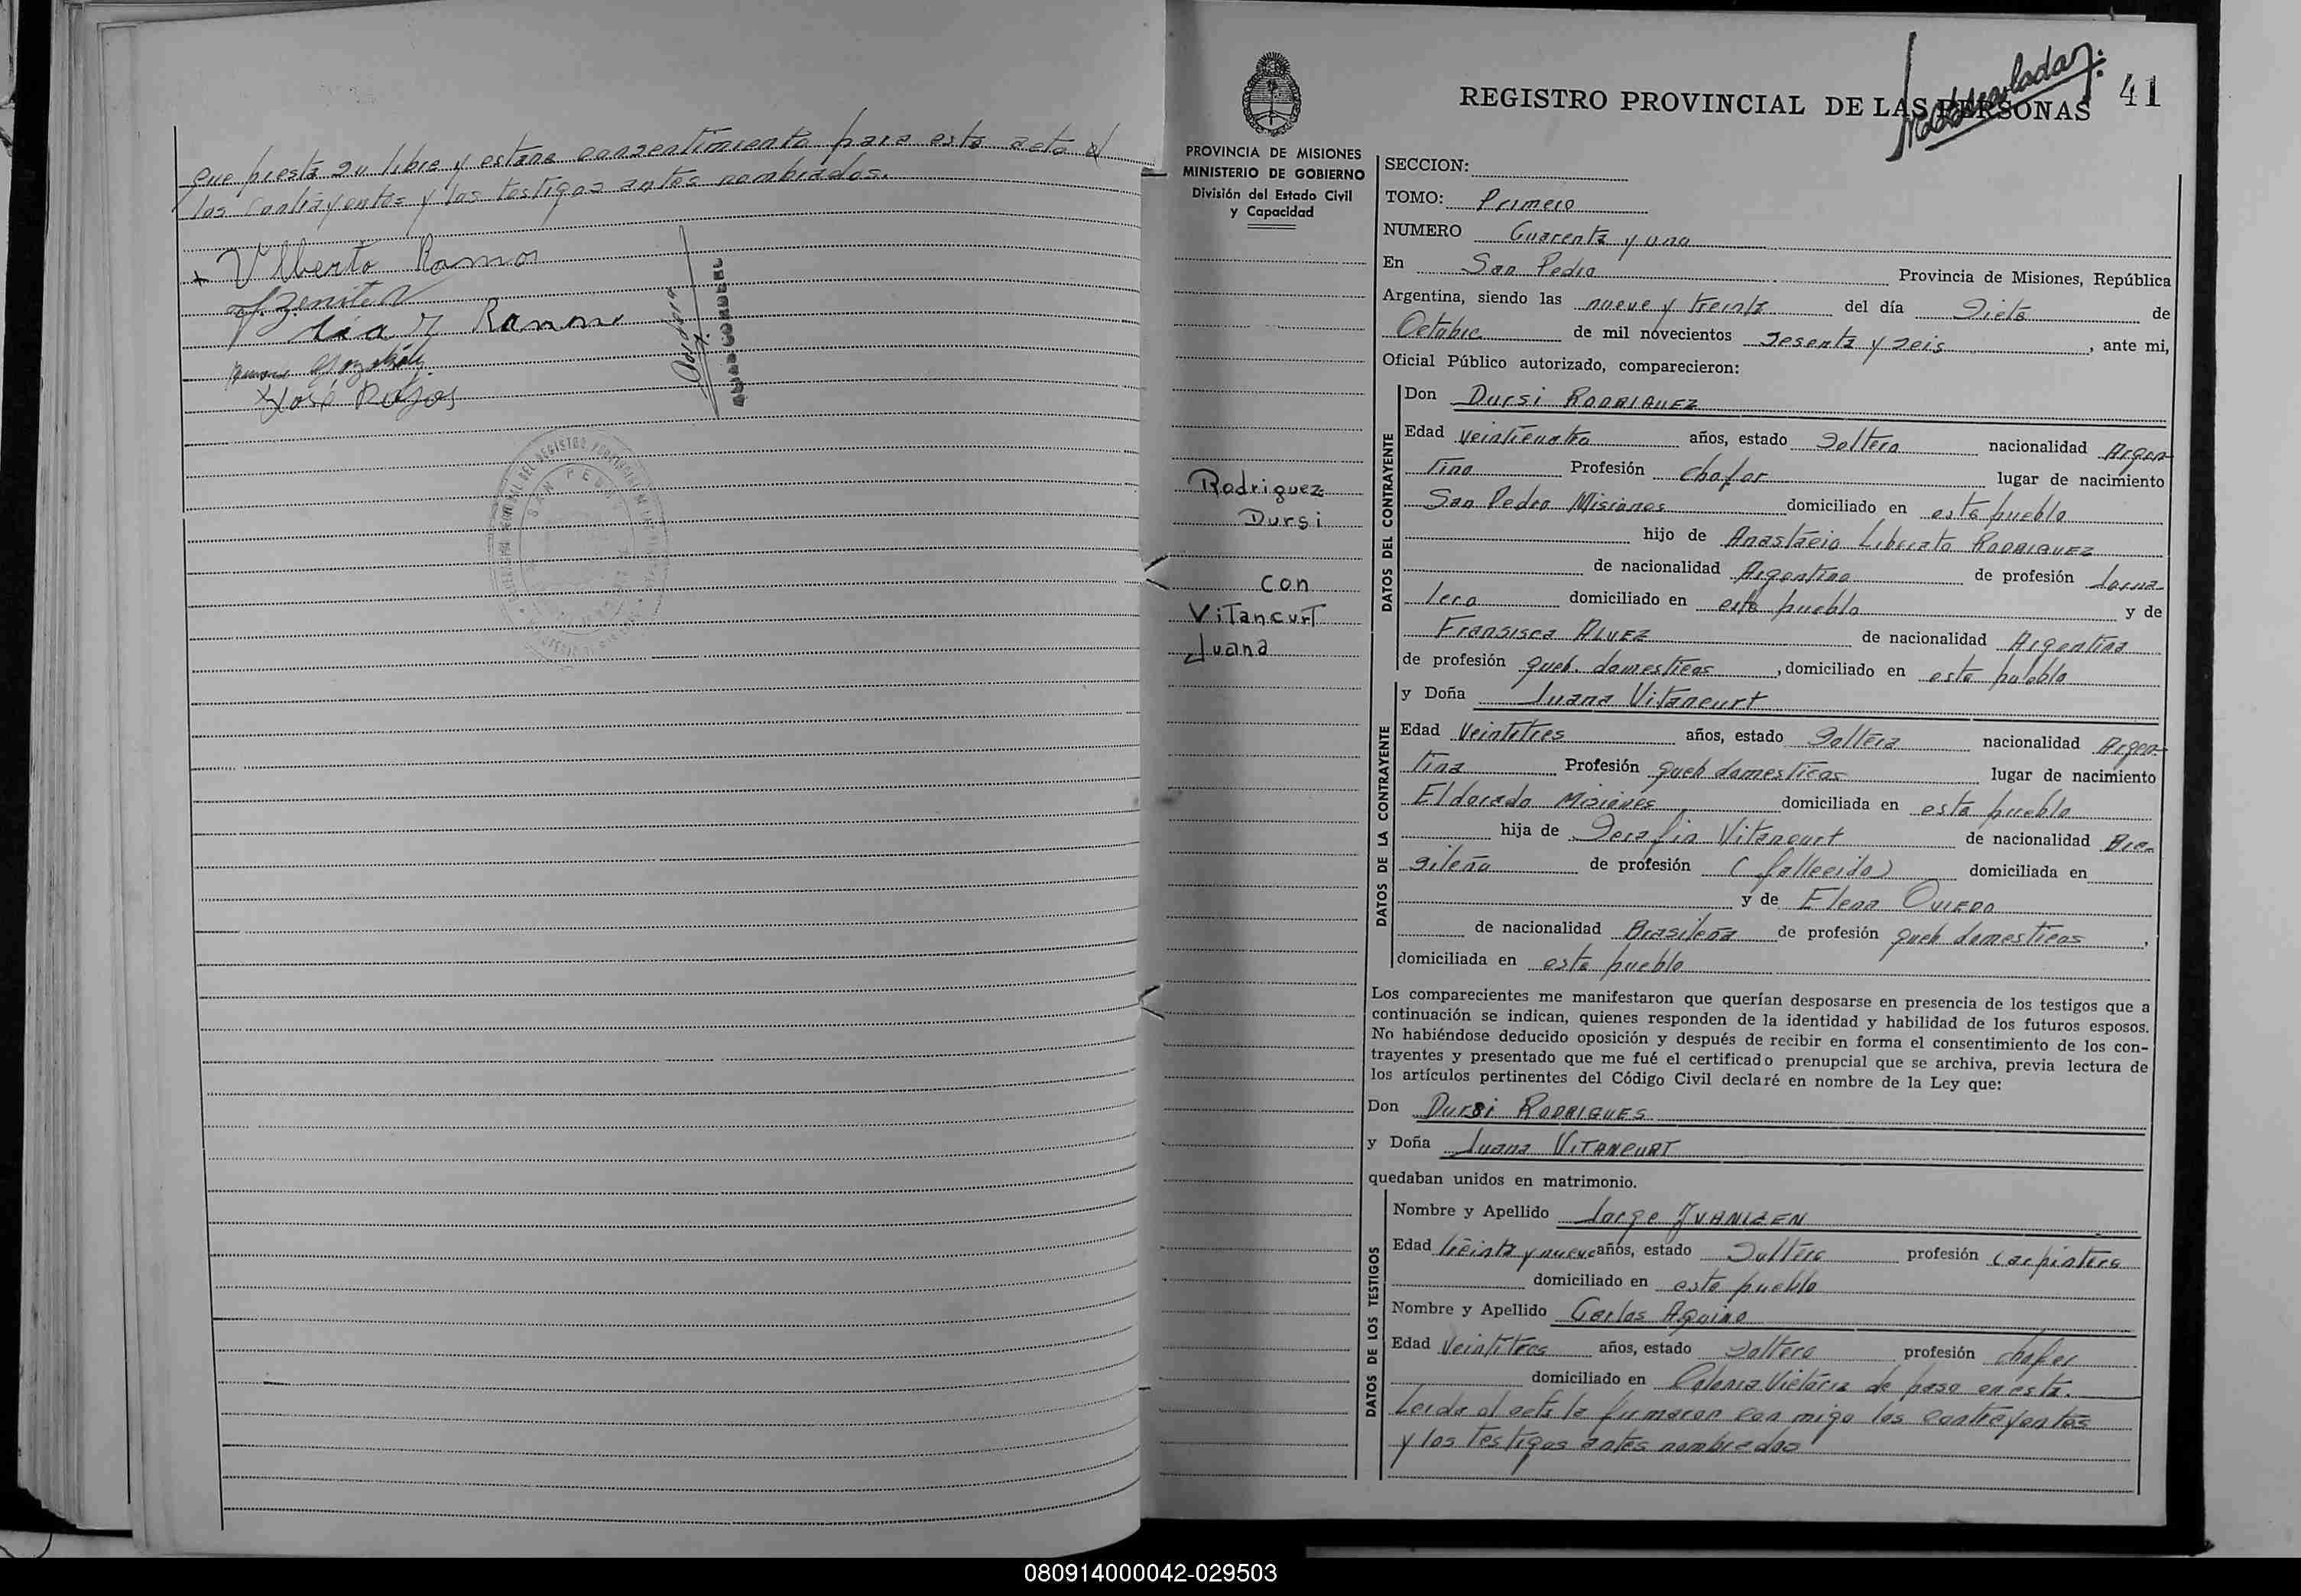 que presta su libre y consentimiento para esta acto el
los contrayentes y los testigos antes nombrados.
Ramos
Benitez
Ramon
José Rojas
SAN PEDRO
41
REGISTRO PROVINCIAL DE LAS PERSONAS
PROVINCIA DE MISIONES
MINISTERIO DE GOBIERNO
División del Estado Civil
y Capacidad
Rodriguez
Dursi
con
ViTancurT
Juana
SECCION:
TOMO: Primero
NUMERO Cuarenta y uno
En San Pedro Provincia de Misiones, República
Argentina, siendo las nueve y treinta del día Siete de
Octubre de mil novecientos sesenta y seis, ante mi,
Oficial Público autorizado, comparecieron:
DATOS DEL CONTRAYENTE
Don Dursi RODRIGUEZ
Edad veinticuatro años, estado Soltero nacionalidad Argen-
tino Profesión chofer lugar de nacimiento
San Pedro Misiones domiciliado en este pueblo
hijo de Anastacio Liberato RODRIGUEZ
de nacionalidad Argentino de profesión Jorna-
lero domiciliado en este pueblo y de
Fransisca ALVEZ de nacionalidad Argentina
de profesión queh. domesticos, domiciliado en este pueblo
DATOS DE LA CONTRAYENTE
y Doña Juana Vitancurt
Edad Veintitres años, estado Soltera nacionalidad Argen-
tina Profesión queh domesticos lugar de nacimiento
Eldorado Misiones domiciliada en este pueblo
hija de Serafin Vitancurt de nacionalidad Bra-
sileño de profesión (fallecido) domiciliada en
y de Elena OVIEDO
de nacionalidad Brasileña de profesión queh domesticos,
domiciliada en este pueblo
Los comparecientes me manifestaron que querían desposarse en presencia de los testigos que a
continuación se indican, quienes responden de la identidad y habilidad de los futuros esposos.
No habiéndose deducido oposición y después de recibir en forma el consentimiento de los con-
trayentes y presentado que me fué el certificado prenupcial que se archiva, previa lectura de
los artículos pertinentes del Código Civil declaré en nombre de la Ley que:
Don Dursi RODRIGUES
y Doña Juana VITANCURT
quedaban unidos en matrimonio.
DATOS DE LOS TESTIGOS
Nombre y Apellido Jorge
Edad treinta y nueve años, estado Soltero profesión carpintero
domiciliado en este pueblo
Nombre y Apellido Carlos Aquino
Edad Veintitres años, estado Soltero profesión chofer
domiciliado en Colonia Victoria de paso en esta.
Leida el acta la firmaron con migo los contrayentes
y los testigos antes nombrados
080914000042-029503